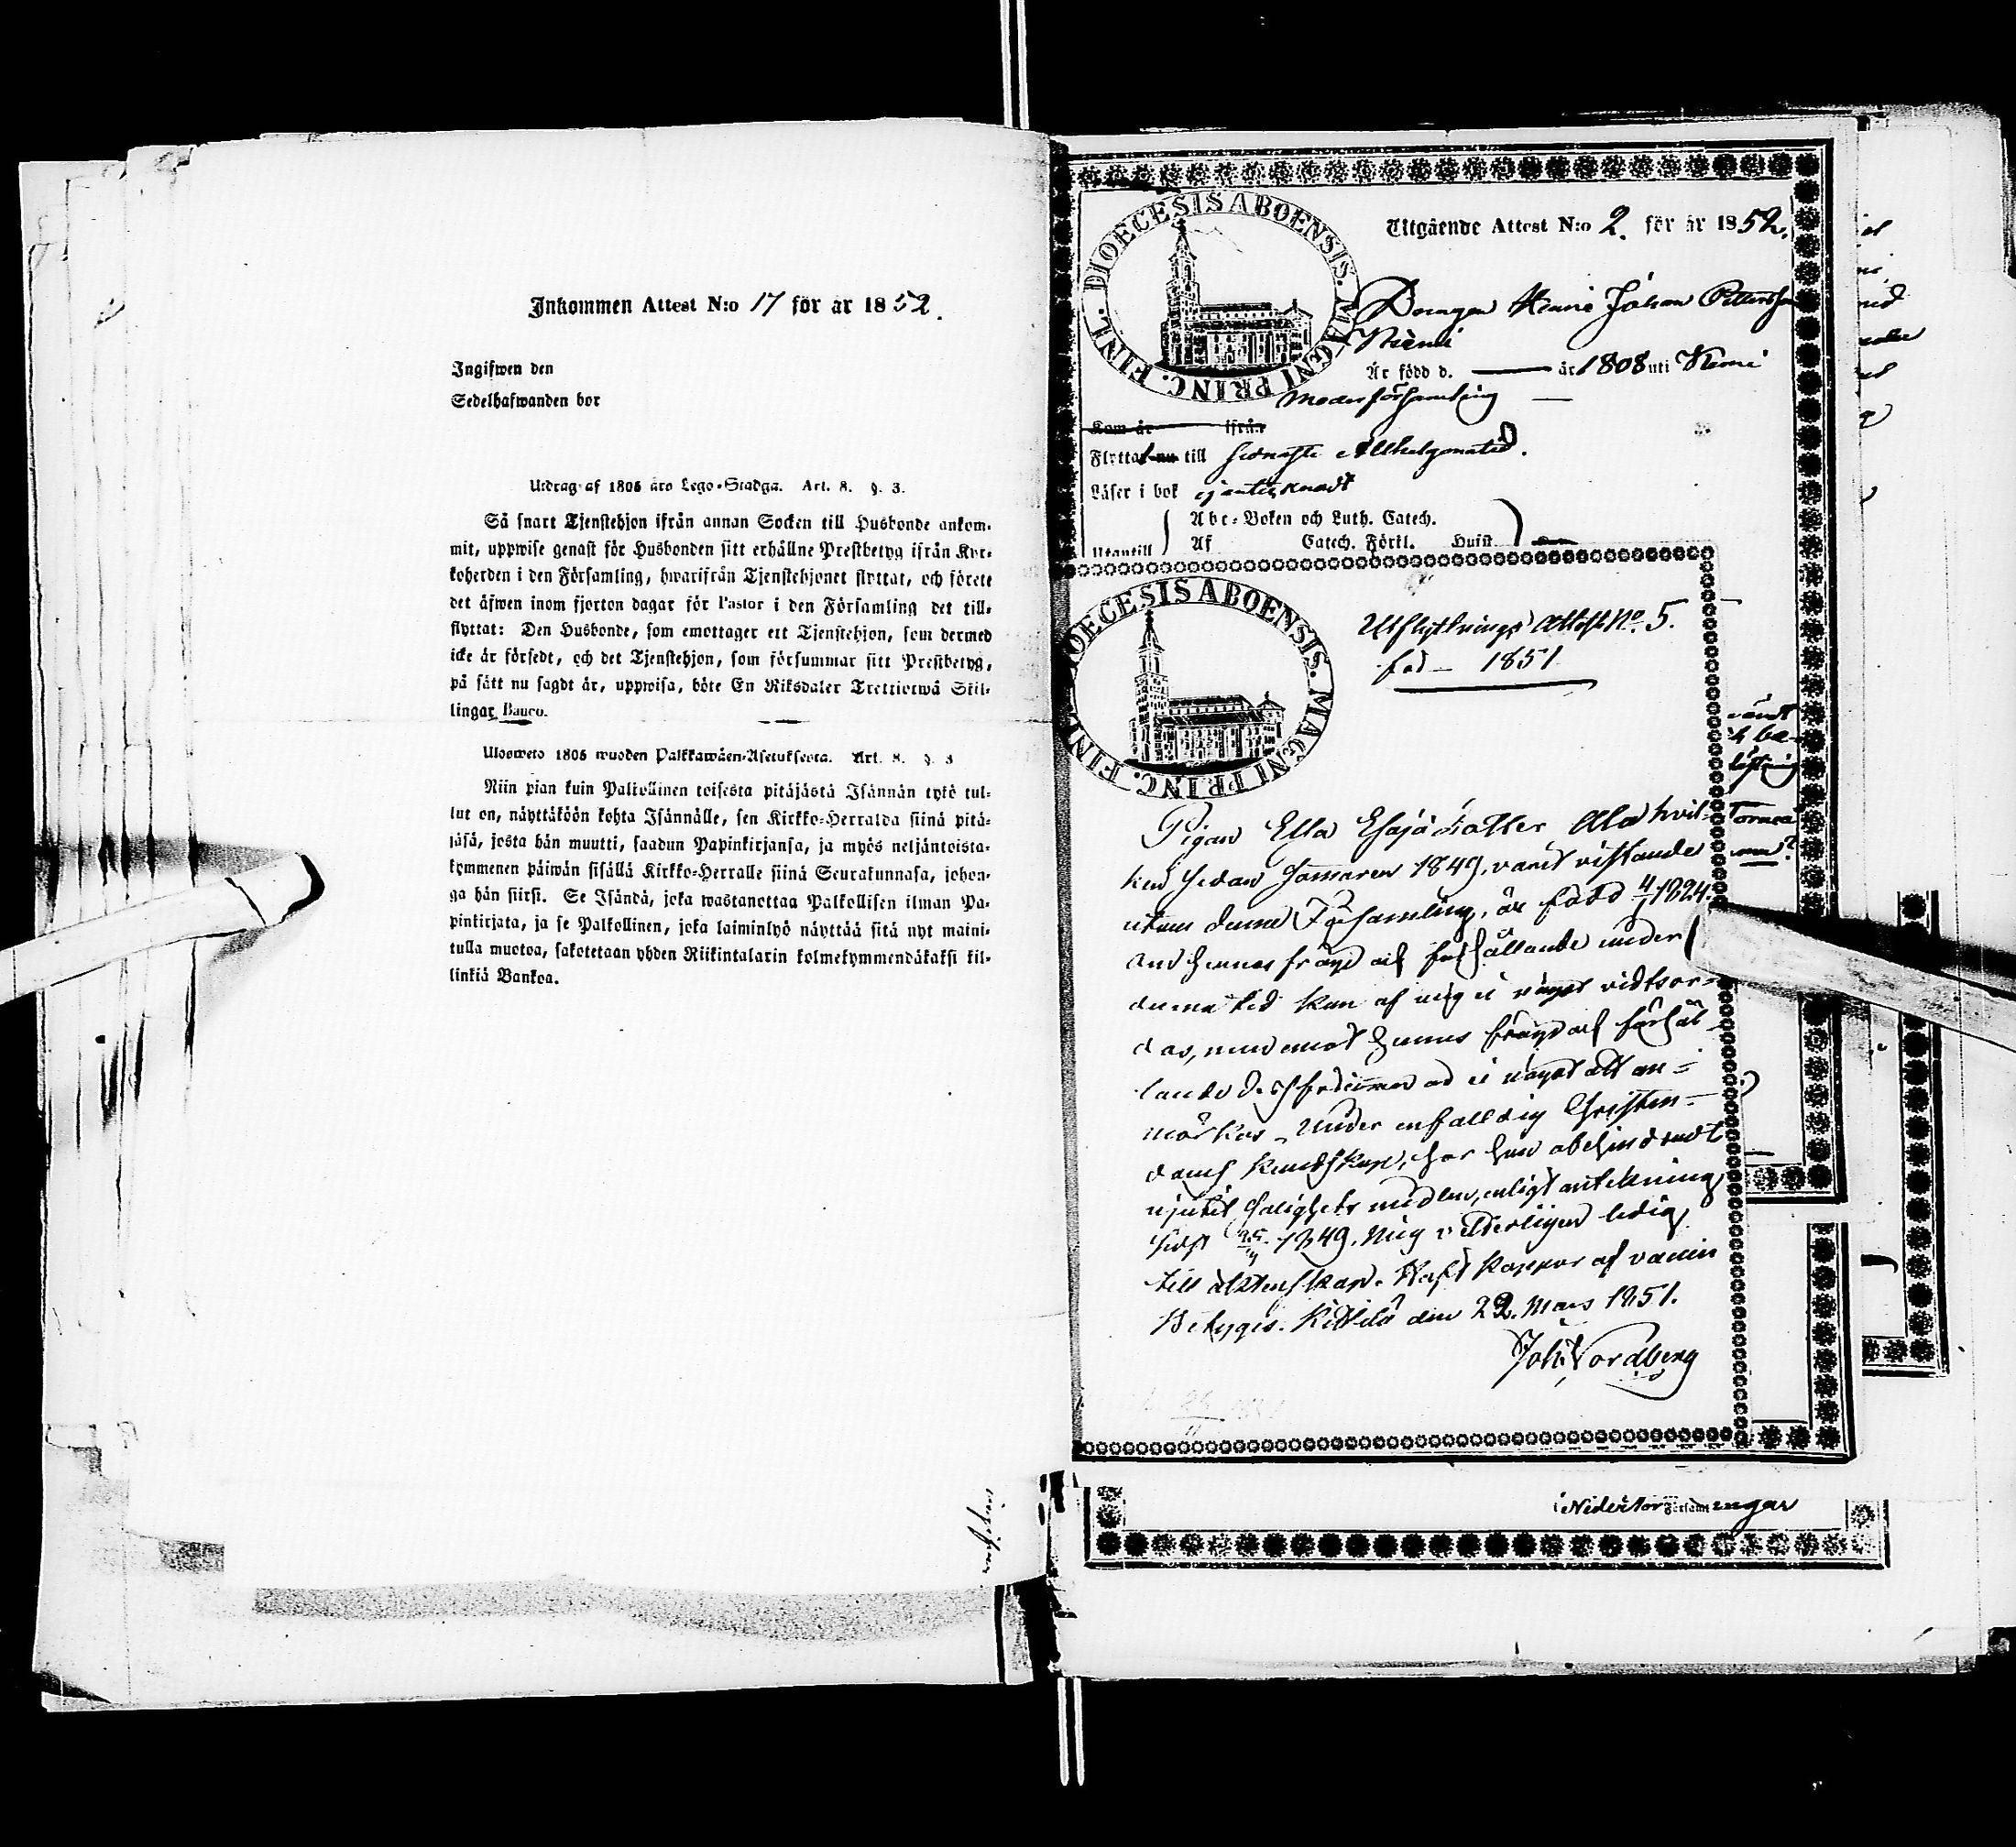 Inkommen Attest N:o 17 för år 1852.
Ingifwen den
Sedelhafwanden bor
Utdrag af 1805 års Lego-Stadga. Art. 8. §. 3.
Så snart Tjenstehjon ifrån annan Socken till Husbonde ankom-
mit, uppwise genast för Husbonden sitt erhållne Prestbetyg ifrån Kyr-
koherden i den Församling, hwarifrån Tjenstehjonet flyttat, och förete
det äfwen inom fjorton dagar för Pastor i den Församling det till-
flyttat: Den Husbonde, som emottager ett Tjenstehjon, som dermed
icke är försedt, och det Tjenstehjon, som försummar sitt Prestbetyg,
på sätt nu sagdt är, uppwisa, böte En Riksdaler Trettiotwå Skil-
lingar Banco.
Uloswete 1805 wuoden Palkkawäen-Asetuksesta. Art. 8. §. 3
Niin pian kuin Palkollinen toisesta pitäjästä Isännän tykö tul-
lut on, näyttäköön kohta Isännälle, sen Kirkko-Herralda siinä pitä-
jäsä, josta hän muutti, saadun Papinkirjansa, ja myös neljäntoista-
kymmenen päiwän sisällä Kirkko-Herralle siinä Seurakunnasa, johon-
ga hän siirsi. Se Isändä, joka wastanottaa Palkollisen ilman Pa-
pinkirjata, ja se Palkollinen, joka laiminlyö näyttää sitä nyt maini-
tulla muotoa, sakotetaan yhden Riikintalarin kolmekymmendäkaksi kil-
linkiä Bankoa.
DIOECESIS ABOENSIS. MAGNI PRINC. FINL.
Utgående Attest N:o 2. för år 1852.
Drengen Johan
Niemi
Är född d. — år 1808 uti Kemi
Moderförsamling —
Kom år ifrån
Flyttat nu till sednaste Allhelgonatid.
Läser i bok
Abc-Boken och Luth. Catech.
Utantill Af Catech. Förkl. Huist.
DIOECESIS ABOENSIS. MAGNI PRINC. FINL.
Utflyttnings Attest No. 5.
för 1851
Pigan Ella Esaja dotter Ala hvil-
ken sedan sommaren 1849, varit vistande
utom denna Församling, är född 4/1 1824.
om hennes frägd och förhållande under
denna tid kan af mig ei något vidtsor-
das, men emot hennes frägd och förhål-
lande dessförinnan ad ei något att an-
märkas. Under enfalldig Christen-
doms kundskap, har hon obehindradt
njutit salighets medlen, enligt antekning
sidst 1849. Mig veterligen ledig
till äktenskap. Haft koppor af vaccin
Betygas. Kittilä den 22. Mars 1851.
Joh. Nordberg
Torneå
Församl